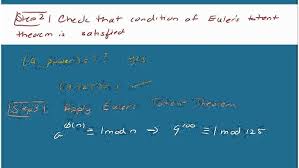 Step 2 | Check that condition of Euler's totent
theorem is satisfied
yes
Step 3 | Apply Euler's Totent Theorem
a^φ(n) ≡ 1 mod n → 9^100 ≡ 1 mod 125